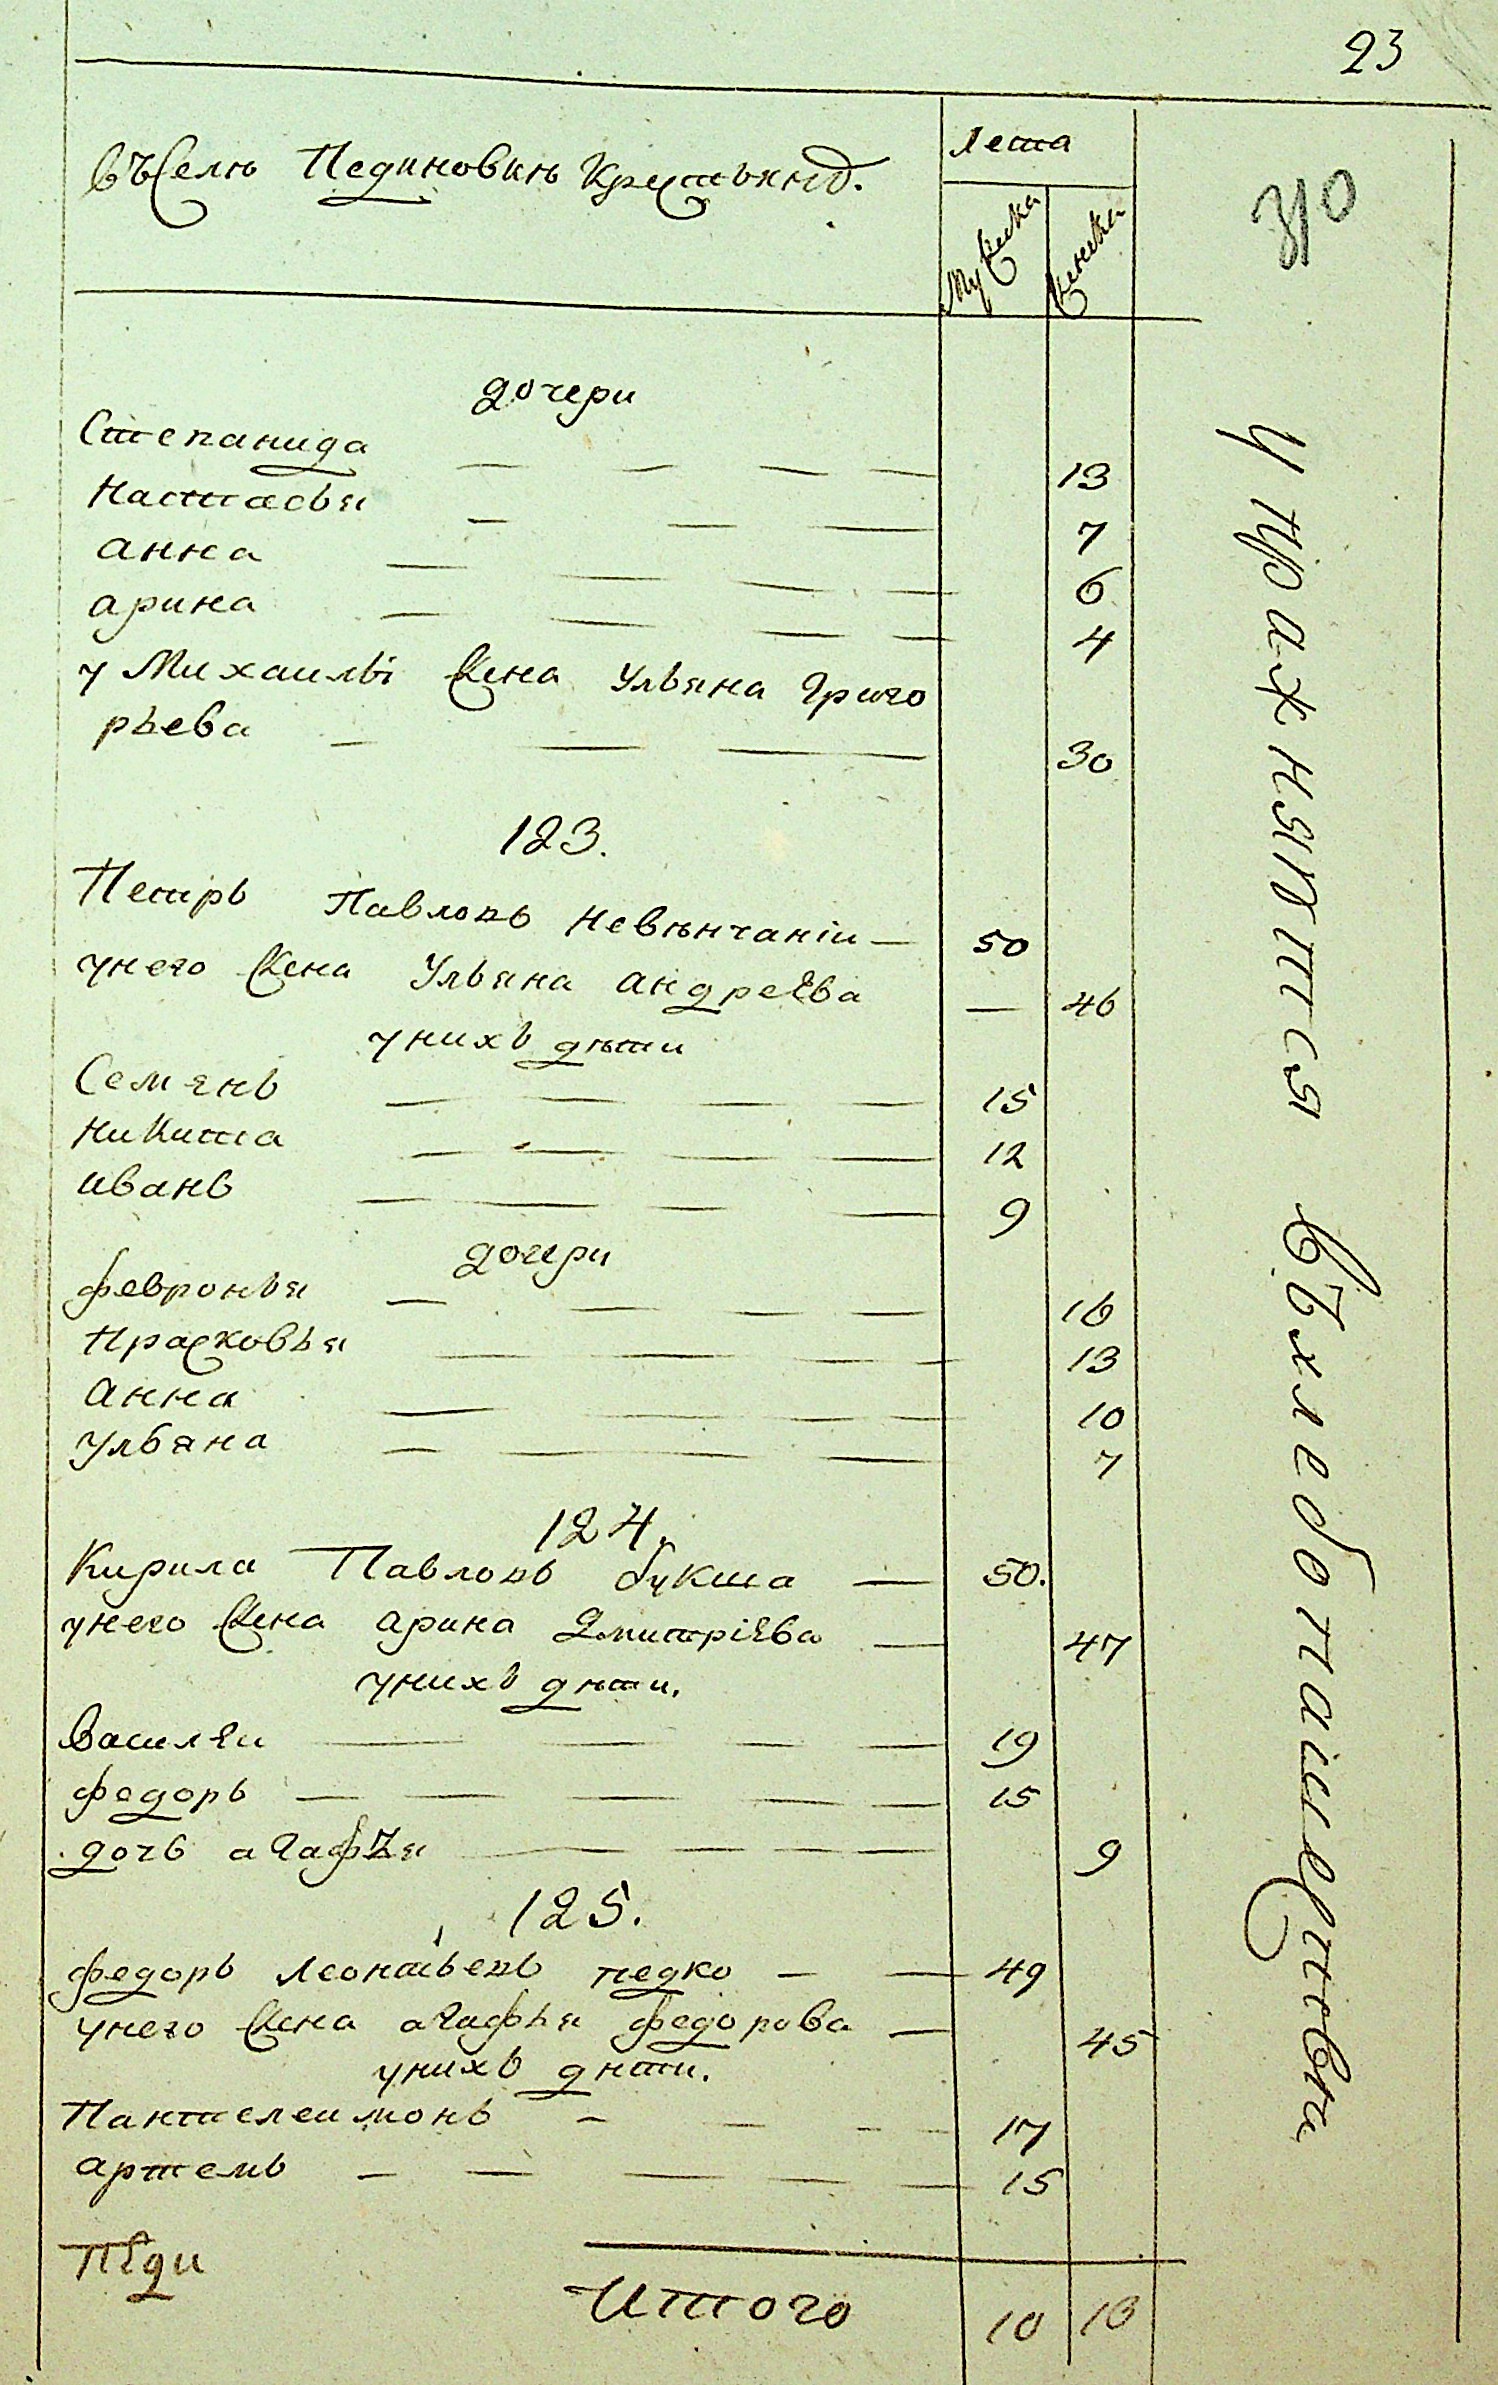 23
въ Селѣ Пединовкѣ Крестьянъ.
Лета
Мужеска
Женска
310
дочери
Степанида — — — — 13
Настасья — — — 7
анна — — — — 6
арина — — — — 4
у Михаилы Жена Ульяна Григо
рьева — — — 30
123.
Петръ Павловъ Невѣнчаніи — 50
унего Жена Ульяна андреева — 46
унихъ дѣти
Семянъ — — — — 15
Никита — — — — 12
иванъ — — — — 9
дочери
февронья — — — — 16
Прасковья — — — — 13
анна — — — — 10
Ульяна — — — 7
124.
Кирила Павловъ букша — 50.
унего Жена арина Дмитріева — 47
унихъ дѣти.
Василеи — — — — 19
федоръ — — — — — 15
дочь агафья — — — — 9
125.
федоръ Леонтьевъ педко — — 49
унего Жена агафья федорова — 45
унихъ дѣти.
Пантелеимонъ — — — — 17
артемъ — — — — — 15
Педи
Итого 10 13
упражняются въ хлебопашественни